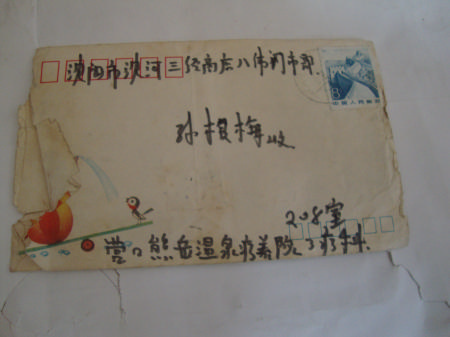 沈阳市沈河三经高杰八伟闭市郡
8
中国人民邮政
孙根梅收
208室
营口熊岳温泉疗养院了疗科